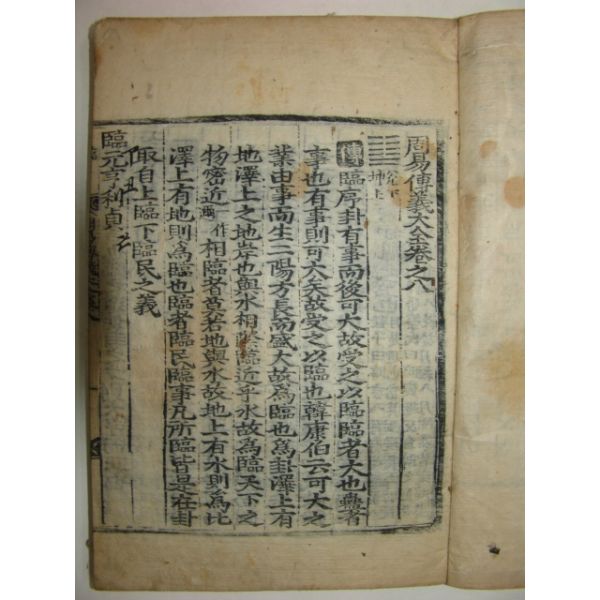 周易傳義大全卷之八
兌下
坤上
傳臨序卦有事而後可大故受之以臨臨者大也蠱者
事也有事則可大矣故受之以臨也韓康伯云可大之
業由事而生二陽方長而盛大故爲臨也爲卦澤上有
地澤上之地岸也與水相際臨近乎水故爲臨天下之
物密近一作相臨者莫若地與水故地上有水則爲比
澤上有地則爲臨也臨者臨民臨事凡所臨皆是在卦
取自上臨下臨民之義
臨元亨利貞